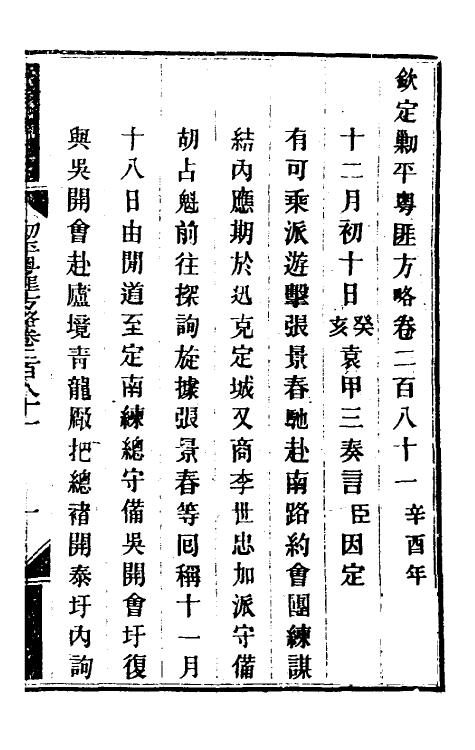 欽定勦平粵匪方略卷二百八十一 辛酉年
十二月初十日癸亥袁甲三奏言臣因定
有可乘派遊擊張景春馳赴南路約會團練謀
結內應期於迅克定城又商李世忠加派守備
胡占魁前往探詢旋據張景春等囘稱十一月
十八日由閒道至定南練總守備吳開會圩復
與吳開會赴廬境靑龍厰把總褚開泰圩內詢
勦平粵匪方略卷二百八十一 一